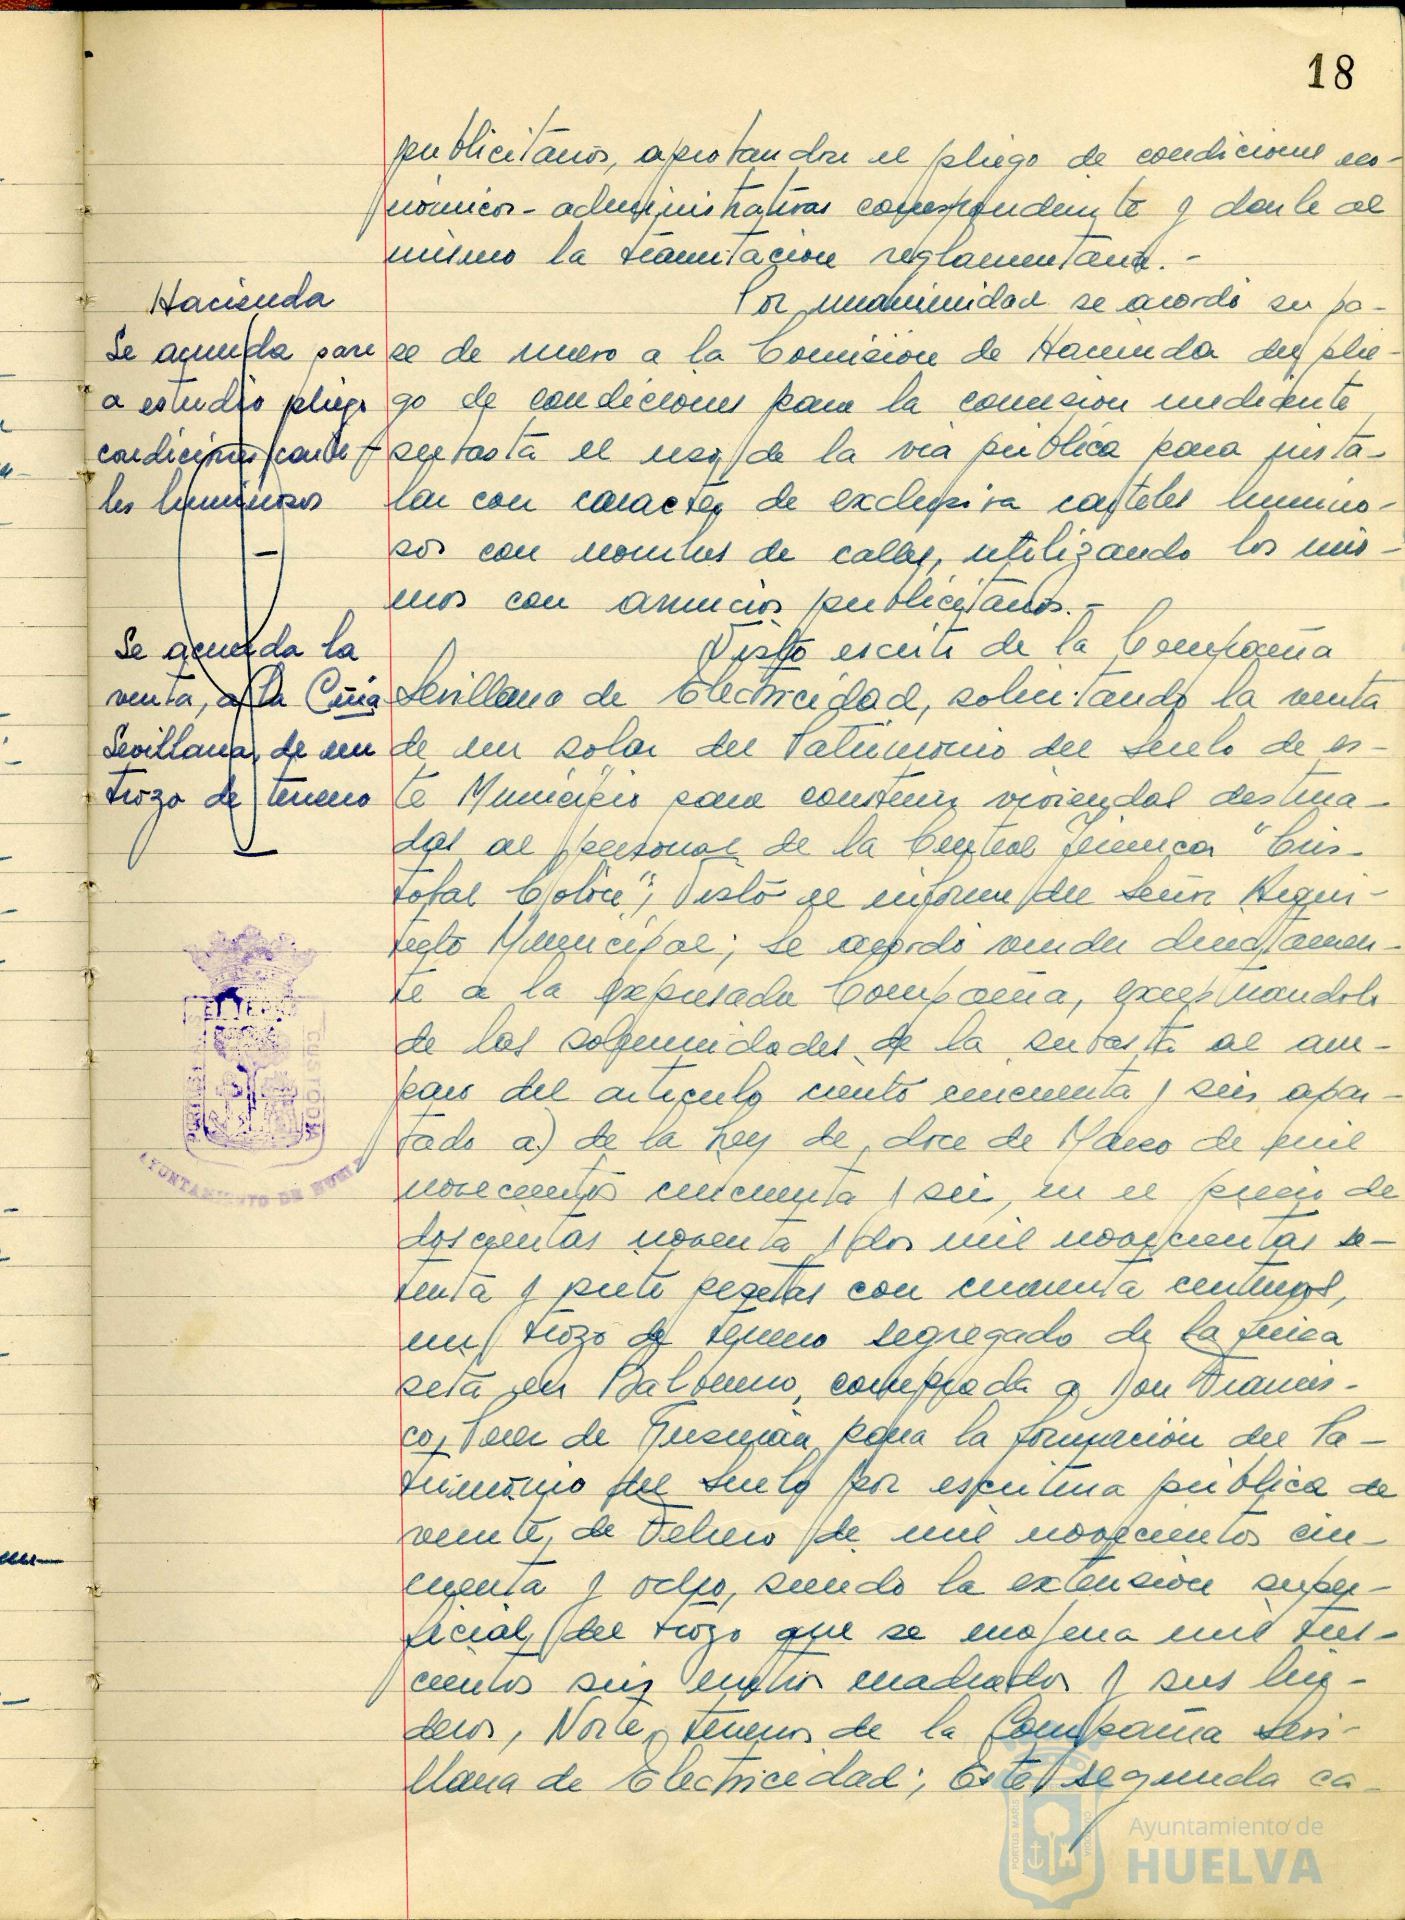 18
publicitarios, aprobandose el pliego de condiciones eco-
nómicos-administrativas correspondiente y darle al
mismo la tramitación reglamentaria.-
Hacienda
Se acuerda pase
a estudio pliego
condiciones carte-
les luminosos
Por unanimidad se acordó su pa-
se de nuevo a la Comisión de Hacienda del plie-
go de condiciones para la concesion mediante
subasta el uso de la via pública para insta-
lar con caracter de exclusiva carteles lumino-
sos con nombres de calles, utilizando los mis-
mos con anuncios publicitarios.-
Se acuerda la
venta, a la Cñia
Sevillana, de un
trozo de terreno
Visto escrito de la Compañia
Sevillana de Electricidad, solicitando la venta
de un solar del Patrimonio del Suelo de es-
te Municipio para construir viviendas destina-
das al personal de la Central Térmica "Cris-
tobal Colón"; Visto el informe del Señor Arqui-
tecto Municipal; se acordó vender directamen-
te a la expresada Compañia, exceptuandola
de las solemnidades de la subasta al am-
paro del articulo ciento cincuenta y seis apar-
tado a) de la Ley de doce de Marzo de mil
novecientos cincuenta y seis, en el precio de
doscientas noventa y dos mil novecientas se-
tenta y siete pesetas con cincuenta centimos,
un trozo de terreno segregado de la finca
sita en Balbueno, comprada a Don Francis-
co Perez de Guzmán para la formación del Pa-
trimonio del Suelo por escritura pública de
veinte de Febrero de mil novecientos cin-
cuenta y ocho, siendo la extensión super-
ficial del trozo que se enajena mil tres-
cientos seis metros cuadrados y sus lin-
deros, Norte, terrenos de la Compañia Sevi-
llana de Electricidad; Este segunda ca-
CUSTODIA
AYUNTAMIENTO DE HUELVA
Ayuntamiento de
HUELVA